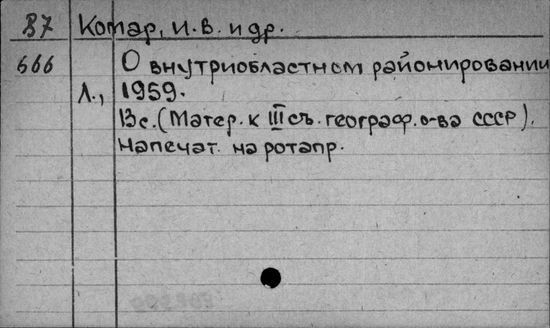 87 Комар, И.В. и др.
666 О внутриобластном районировании
Л., 1959.
13с. (Матер. к III съ. географ. о-ва СССР).
Напечат. на ротапр.